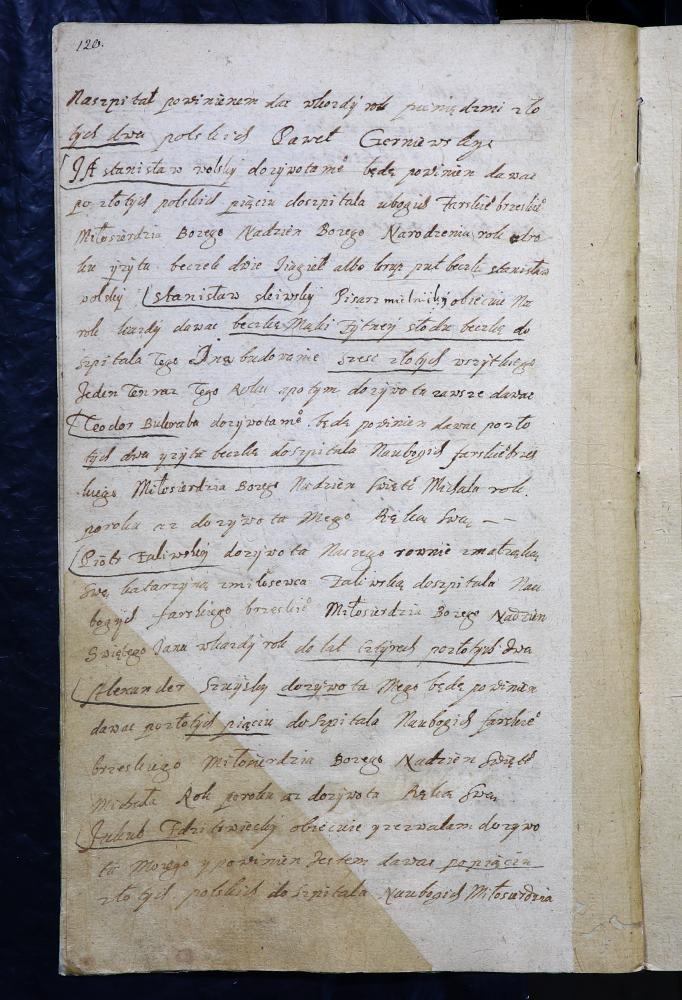 120.
Naszpital powinienem dac wkozdy rok pieniędzmi zło
tych dwa polskich Paweł
JA stanisław wolsky dozywotame będę powinien dawac
po złotych polskich pięciu doszpitala ubogich Farskie brzeskie
Miłosierdzia Bozego Nadzien Bozego Narodzenia rok
yzyta beczek dwie albo krup puł beczki stanisław
wolsky stanisław Pisarz obiecuie Na
rok kazdy dawac beczkę Mąki zytney słodu beczkę do
szpitala Tego Ina budowanie szesc złotych wszytkiego
Jeden Ten raz Tego Roku apotym dozywota zawsze dawac
Teodor Bulwaba dozywotame będę powinien dawac pozło
tych dwa yzyta beczkę doszpitala Naubogich farskie brzes
kiego Miłosierdzia Bozego Nadzien Swięte Michala rok
poroku az dozywota Mego Ręką Swą
Piotr Zaliwsky dozywota Naszego rownie zmałząką
Swą katarzyną Zaliwską doszpitala Nau
bogych farskiego brzeskie Miłosierdzia Bozego Nadzien
Swiętego Jana wkazdy rok do lat cztyrech pozłotych dwa
Alexander Szuysky dozywota Mego będę powinien
dawac pozłotych pięciu doszpitala Naubogich farskie
brzeskiego Miłosierdzia Bozego Nadzien Swięte
Michała Rok poroku az dozywota Ręką Swą
Jakub obiecuie yzezwalam dozywo
ta Moiego y powinien Jestem dawac popięciu
złotych polskich doszpitala Naubogich Miłosierdzia